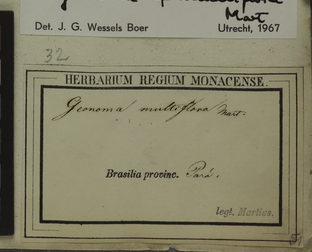 Mart
Det. J. G. Wessels Boer Utrecht, 1967
32
HERBARIUM REGIUM MONACENSE.
Geonoma multiflora Mart.
Brasilia provinc. Pará.
legt. Martius.